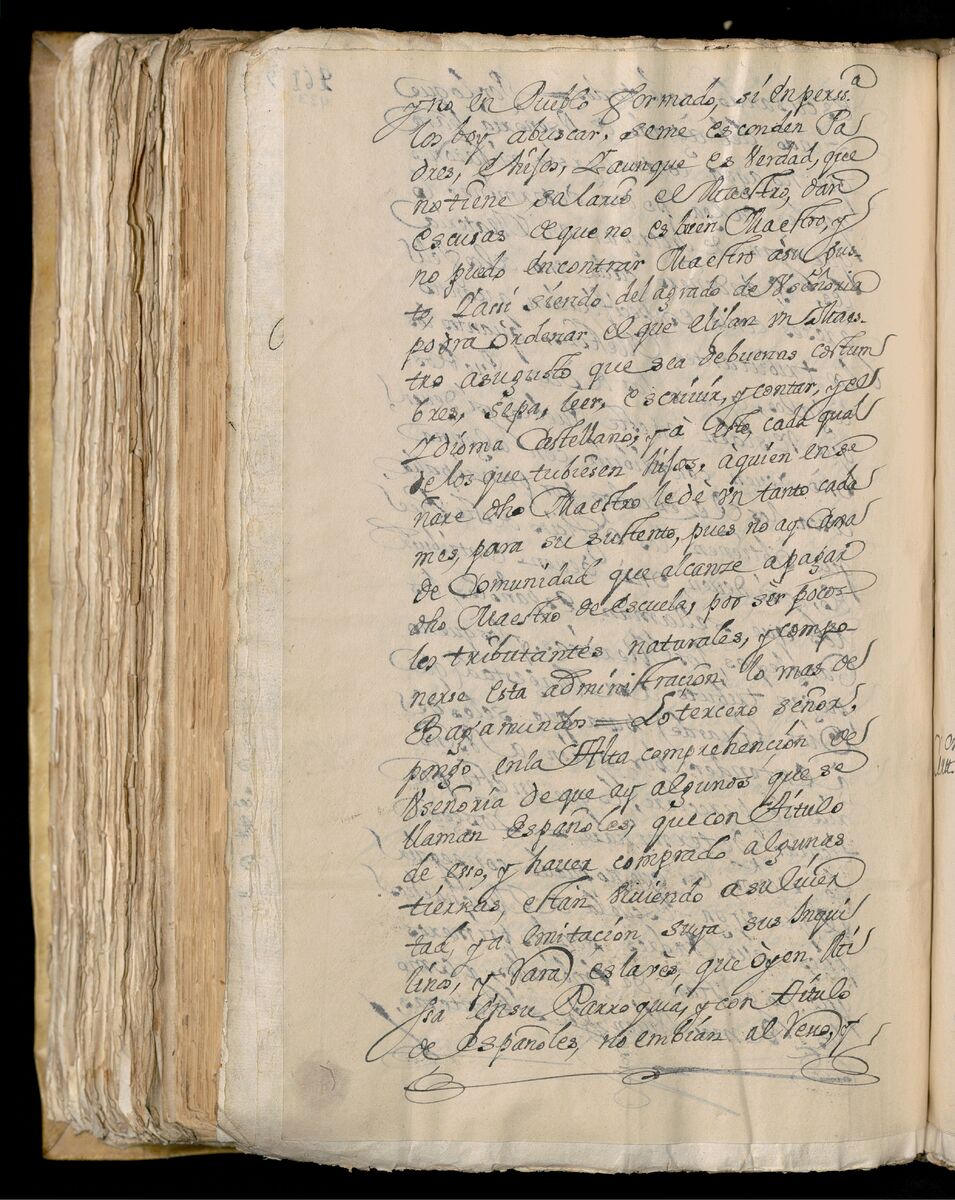 y no en Pueblo formado, si en pers.ª
los boy abuscar, seme esconden Pa
dres, è hijos, Y aunque es Verdad, que
no tiene salario el Maestro, dan
escusas de que no es buen Maestro, y
no puedo encontrar Maestro àsu gus-
to, Y assi siendo del agrado de Vseñoria
podra ordenar el que elijan vn Maes-
tro asugusto que sea debuenas costum
bres, sepa, leer, escriuir, y contar, y el
Ydioma Castellano; y à este, cada qual
de los que tubiesen hijos, àquien ense
ñare dho Maestro le dè vn tanto cada
mes, para su sustento, pues no ay Caxa
de Comunidad que alcanze apagar
dho Maestro de escuela, por ser poco-
los tributantes naturales, y compo
nerse esta administración, lo mas de
Bagamundos = Lo tercero señor,
pongo enla Alta comprehención de
Vseñoria de que ay algunos que se
llaman Españoles, que con Titulo
de esso, y haver comprado algunas
tierras, estan viviendo a su liver
tad, y a emitación suya sus Inqui
linos, y que oyen Mi
sa ensu Parroquia, y con Titulo
de Españoles, no embian al Reso, y